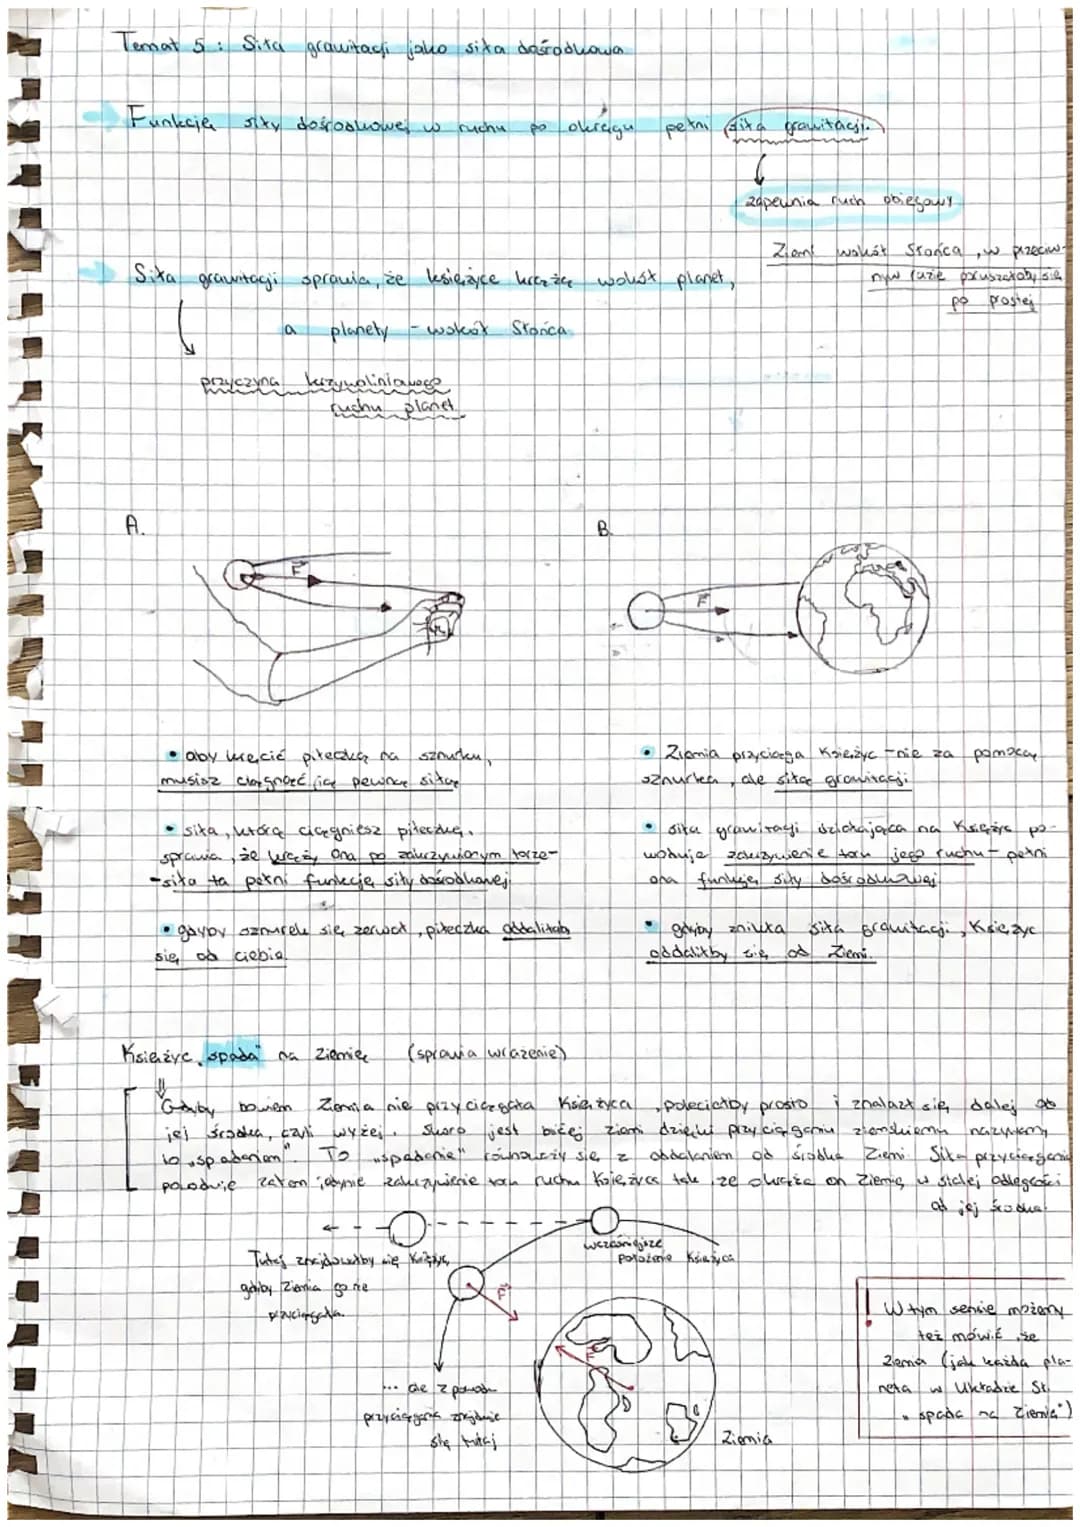 Temat 5 : Siła grawitacji jako siła dośrodkowa
Funkcję siły dośrodkowej w ruchu po okręgu pełni siła grawitacji.
zapewnia ruch obiegowy
Ziemi wokół Słońca, w przeciw-
nym razie poruszałaby się
po prostej
Siła grawitacji sprawia, że księżyce krążą wokół planet,
a planety - wokół Słońca
przyczyna krzywoliniowego
ruchu planet
A.
B.
F
F
• aby kręcić piłeczką na sznurku,
musisz ciągnąć ją pewną siłą
• siła, którą ciągniesz piłeczkę,
sprawia, że krąży ona po zakrzywionym torze-
-siła ta pełni funkcję siły dośrodkowej
• gdyby sznurek się zerwał, piłeczka oddaliłaby
się od ciebie.
• Ziemia przyciąga Księżyc - nie za pomocą
sznurka, ale siłą grawitacji
• siła grawitacji działająca na Księżyc po-
woduje zakrzywienie toru jego ruchu - pełni
ona funkcję siły dośrodkowej
• gdyby znikła siła grawitacji, Księżyc
oddaliłby się od Ziemi.
Księżyc „spada" na Ziemię (sprawia wrażenie)
Gdyby bowiem Ziemia nie przyciągała Księżyca, poleciałby prosto i znalazł się dalej od
jej środka, czyli wyżej. Skoro jest bliżej Ziemi dzięki przyciąganiu ziemskiemu nazywamy
to „spadaniem". To „spadanie" równoważy się z oddalaniem od środka Ziemi. Siła przyciągania
powoduje zatem jedynie zakrzywienie toru ruchu Księżyca tak, że okrąża on Ziemię w stałej odległości
od jej środka.
Tutaj znajdowałby się Księżyc,
gdyby Ziemia go nie
przyciągała.
wcześniejsze
położenie Księżyca
F
F
... ale z powodu
przyciągania znajdzie
się tutaj
Ziemia
! W tym sensie możemy
też mówić, że
Ziemia (jak każda pla-
neta w Układzie Sł.
„spada na Ziemię")